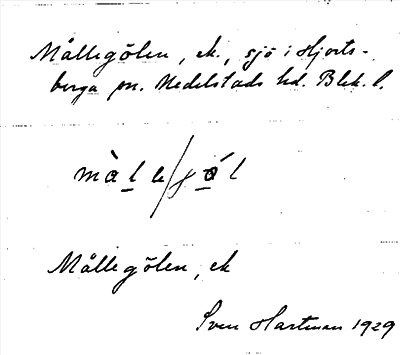 Mållegölen, ek., sjö i Hjorts-
berga sn. Medelstads hd. Blek. l.
mà l e/gö́l
Mållegölen, ek
Sven Hartman 1929